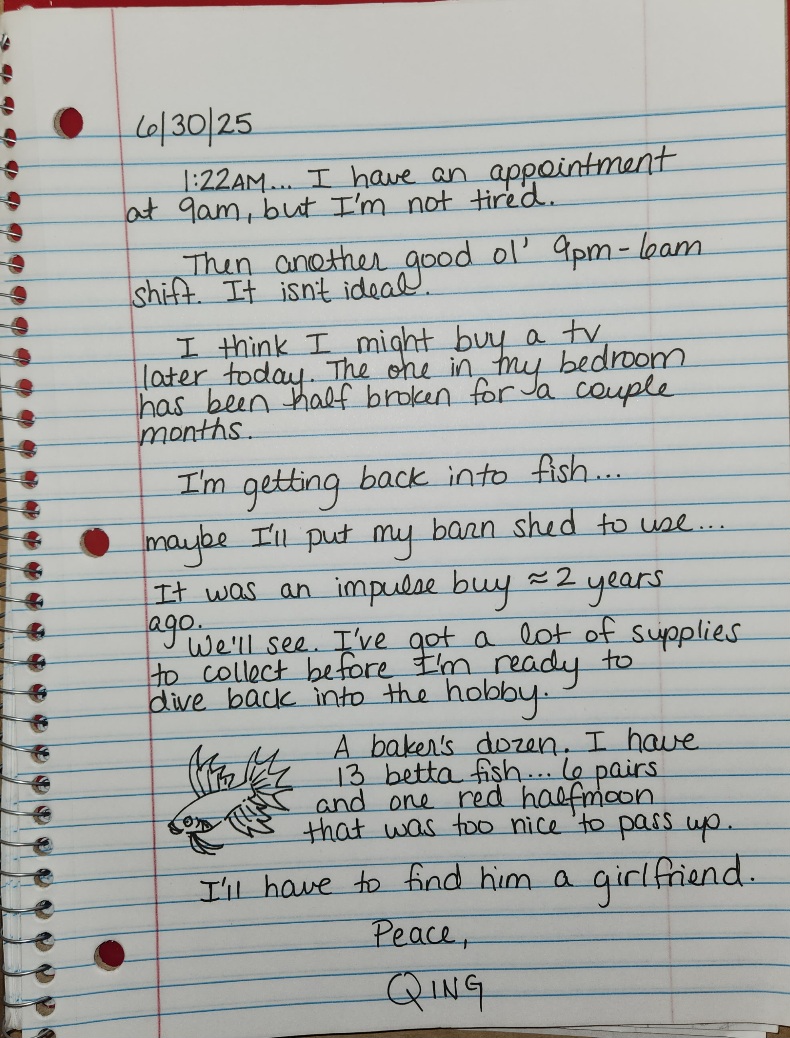 6/30/25
1:22AM... I have an appointment
at 9am, but I'm not tired.
Then another good ol' 9pm-6am
shift. It isn't ideal.
I think I might buy a tv
later today. The one in my bedroom
has been half broken for a couple
months.
I'm getting back into fish...
maybe I'll put my barn shed to use...
It was an impulse buy ≈ 2 years
ago.
We'll see. I've got a lot of supplies
to collect before I'm ready to
dive back into the hobby.
A baker's dozen. I have
13 betta fish... 6 pairs
and one red halfmoon
that was too nice to pass up.
I'll have to find him a girlfriend.
Peace,
QING